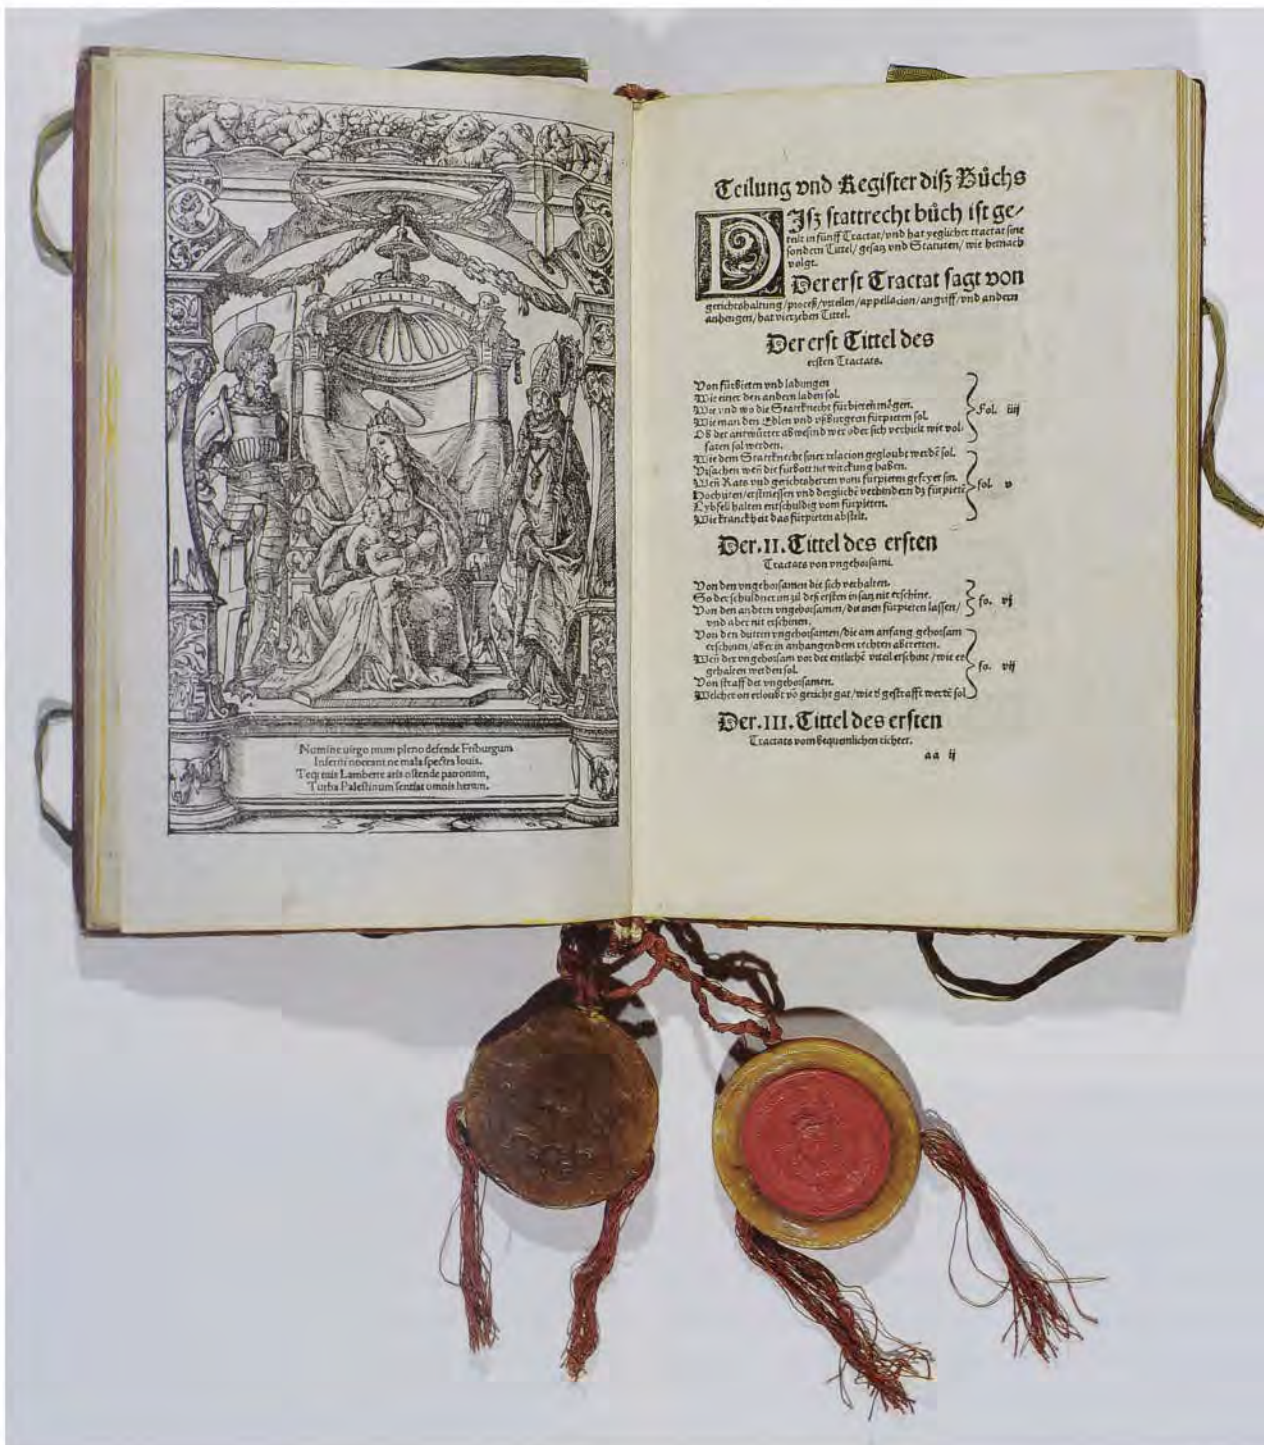 Numine uirgo tuum pleno defende Friburgum
Inferni noceant ne mala spectra Iouis.
Teq; tuis Lamberte aris ostende patronum,
Turba Palestinum sentiat omnis herum.
Teilung vnd Register diß Bůchs
DIsz stattrecht bůch ist ge/
teilt in fünff Tractat/vnd hat yeglicher tractat sine
sondern Tittel/gesatz vnd Statuten/wie hernach
volgt.
Der erst Tractat sagt von
gerichtshaltung/proceß/vrteilen/appellacion/angriff/vnd andern
anhengen/hat vierzehen Tittel.
Der erst Tittel des
ersten Tractats.
Von fürbieten vnd ladungen
Wie einer den andern laden sol.
Wie vnd wo die Stattknecht fürbieten mögen.
Wie man den Edlen vnd vßburgern fürpieten sol.
Ob der antwürter abwesind wer oder sich verhielt wie vol/
faren sol werden.
Fol. iiij
Wie dem Stattknecht siner relacion gegloubt werdē sol.
Vrsachen weñ die fürbott nit wirckung haben.
Weñ Rats vnd gerichtsherren vom fürpieten gefryet sin.
Hochziten/erstmessen vnd derglichē verhindern dz fürpietē
Lybfell halten entschuldig vom fürpieten.
Wie kranckheit das fürpieten abstelt.
fol. v
Der.II.Tittel des ersten
Tractats von vngehorsami.
Von den vngehorsamen die sich verhalten.
So der schuldner im zil deß ersten vfsatz nit erschine.
Von den andern vngehorsamen/die inen fürpieten lassen/
vnd aber nit erschinen.
fo. vj
Von den dritten vngehorsamen/die am anfang gehorsam
erschinen/aber in anhangendem rechten abtretten.
Weñ der vngehorsam vor der entlichē vrteil erschint/wie er
gehalten werden sol.
Von straff der vngehorsamen.
Welcher on erloubt vō gericht gat/wie d' gestrafft werdē sol
fo. vij
Der.III.Tittel des ersten
Tractats vom bequemlichen richter.
aa ij